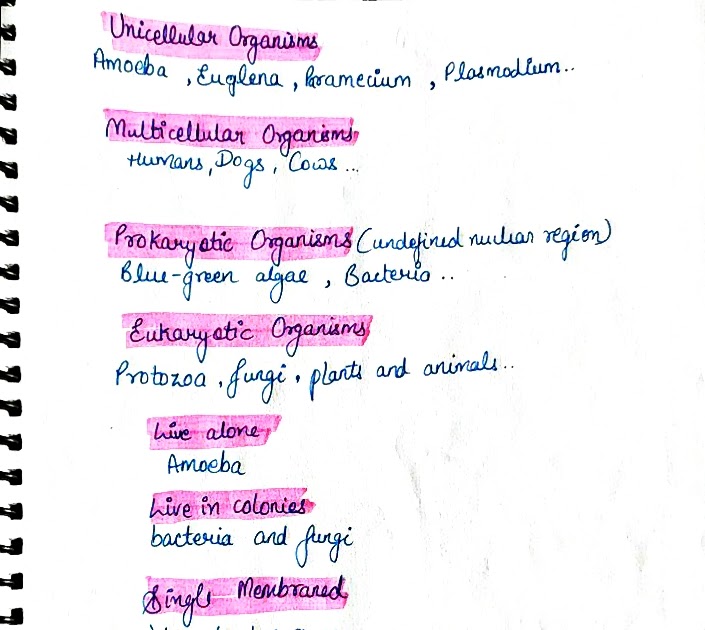 Unicellular Organisms
Amoeba, Euglena, Paramecium, Plasmodium..
Multicellular Organisms
Humans, Dogs, Cows...
Prokaryotic Organisms (undefined nuclear region)
Blue-green algae, Bacteria..
Eukaryotic Organisms
Protozoa, fungi, plants and animals..
Live alone
Amoeba
Live in colonies
bacteria and fungi
Single Membraned